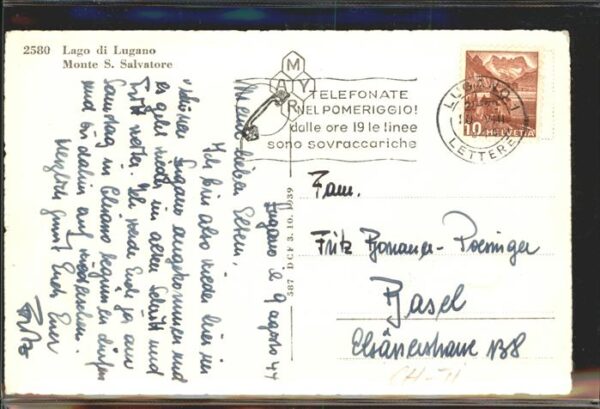 2580 Lago di Lugano
Monte S. Salvatore
Lugano il 9 agosto 44
Meine lieben Eltern.
Ich bin also wieder hier im
schönen Lugano angekommen und
es geht wieder im alten Schritt und
Tritt weiter. Ich werde Euch ja am
Samstag in begrüssen dürfen
und bis dahin auf wiedersehen.
Herzlich grüsst Euch Euer
Fritz
587 DCF 3.10.1939
MAYR
TELEFONATE
NEL POMERIGGIO!
dalle ore 19 le linee
sono sovraccariche
LUGANO 1
LETTERE
10 HELVETIA
Fam.
Fritz
Basel
Elsässerstrasse 138
CH-TI